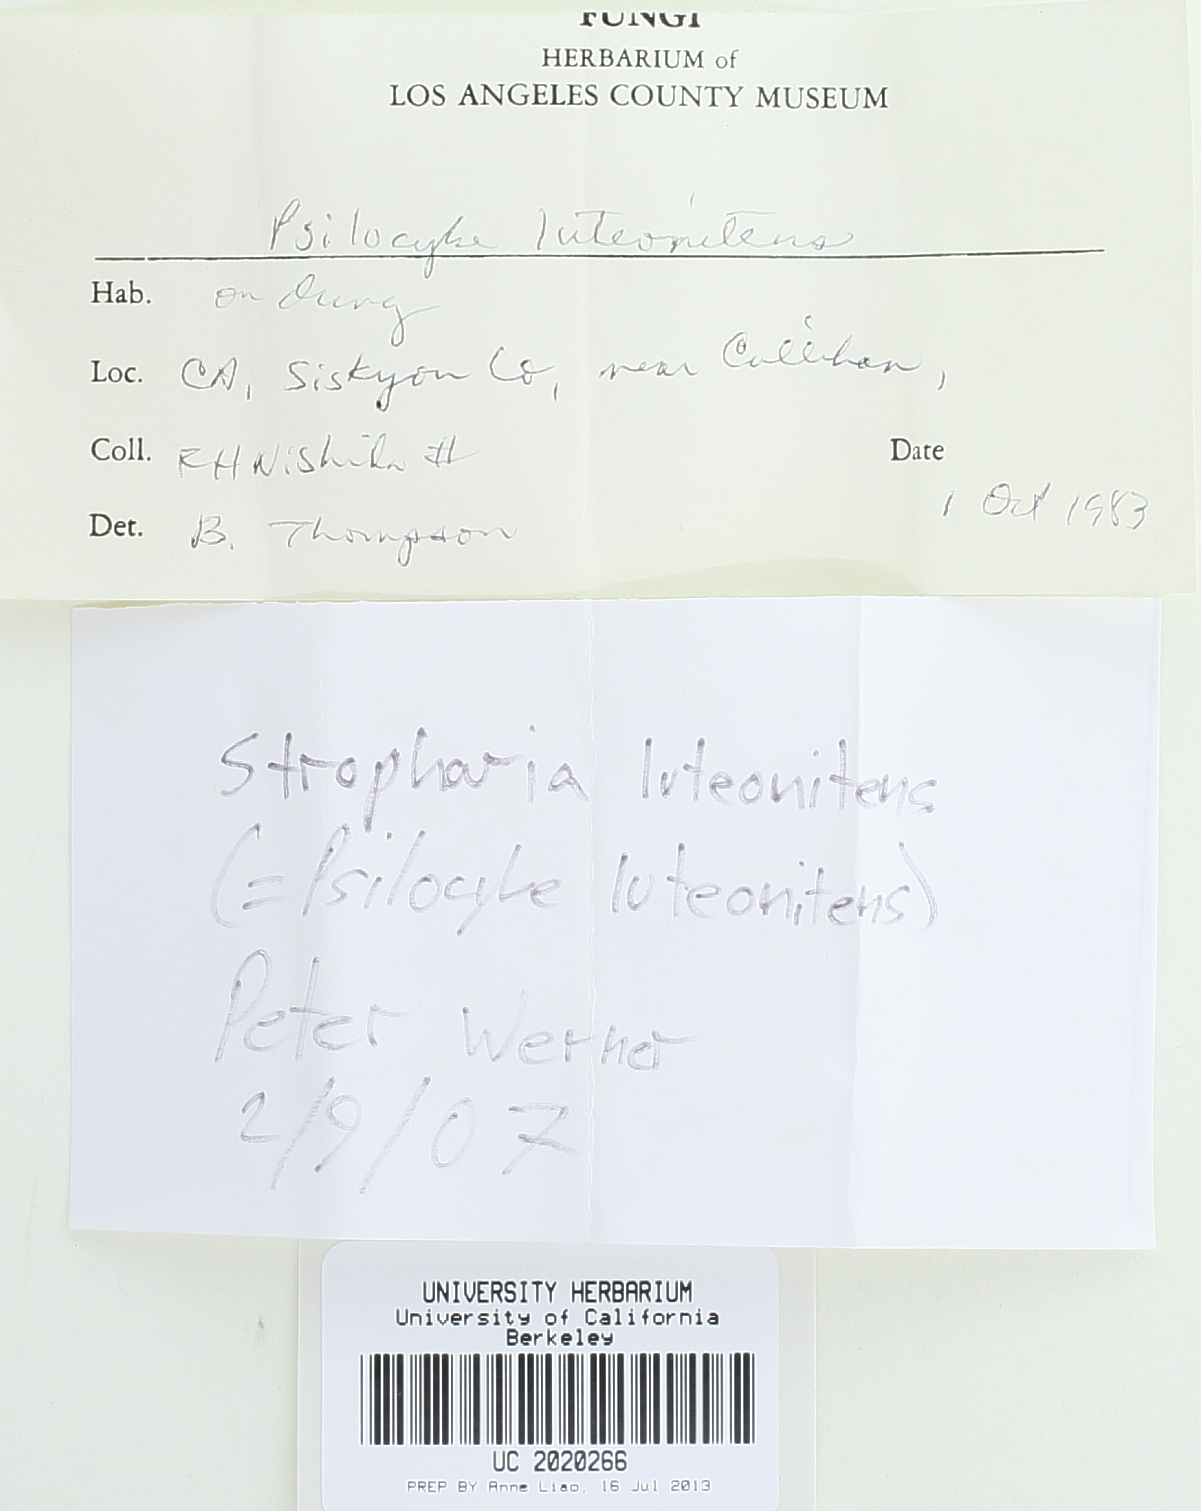 FUNGI
HERBARIUM of
LOS ANGELES COUNTY MUSEUM
Psilocybe luteonitens
Hab. on dung
Loc. CA, Siskyou Co, near Callihan,
Coll. RH Nishida #
Date
1 Oct 1983
Det. B. Thompson
Stropharia luteonitens
(=Psilocybe luteonitens)
Peter Werner
2/9/07
UNIVERSITY HERBARIUM
University of California
Berkeley
UC 2020266
PREP BY Anne Liao, 16 Jul 2013